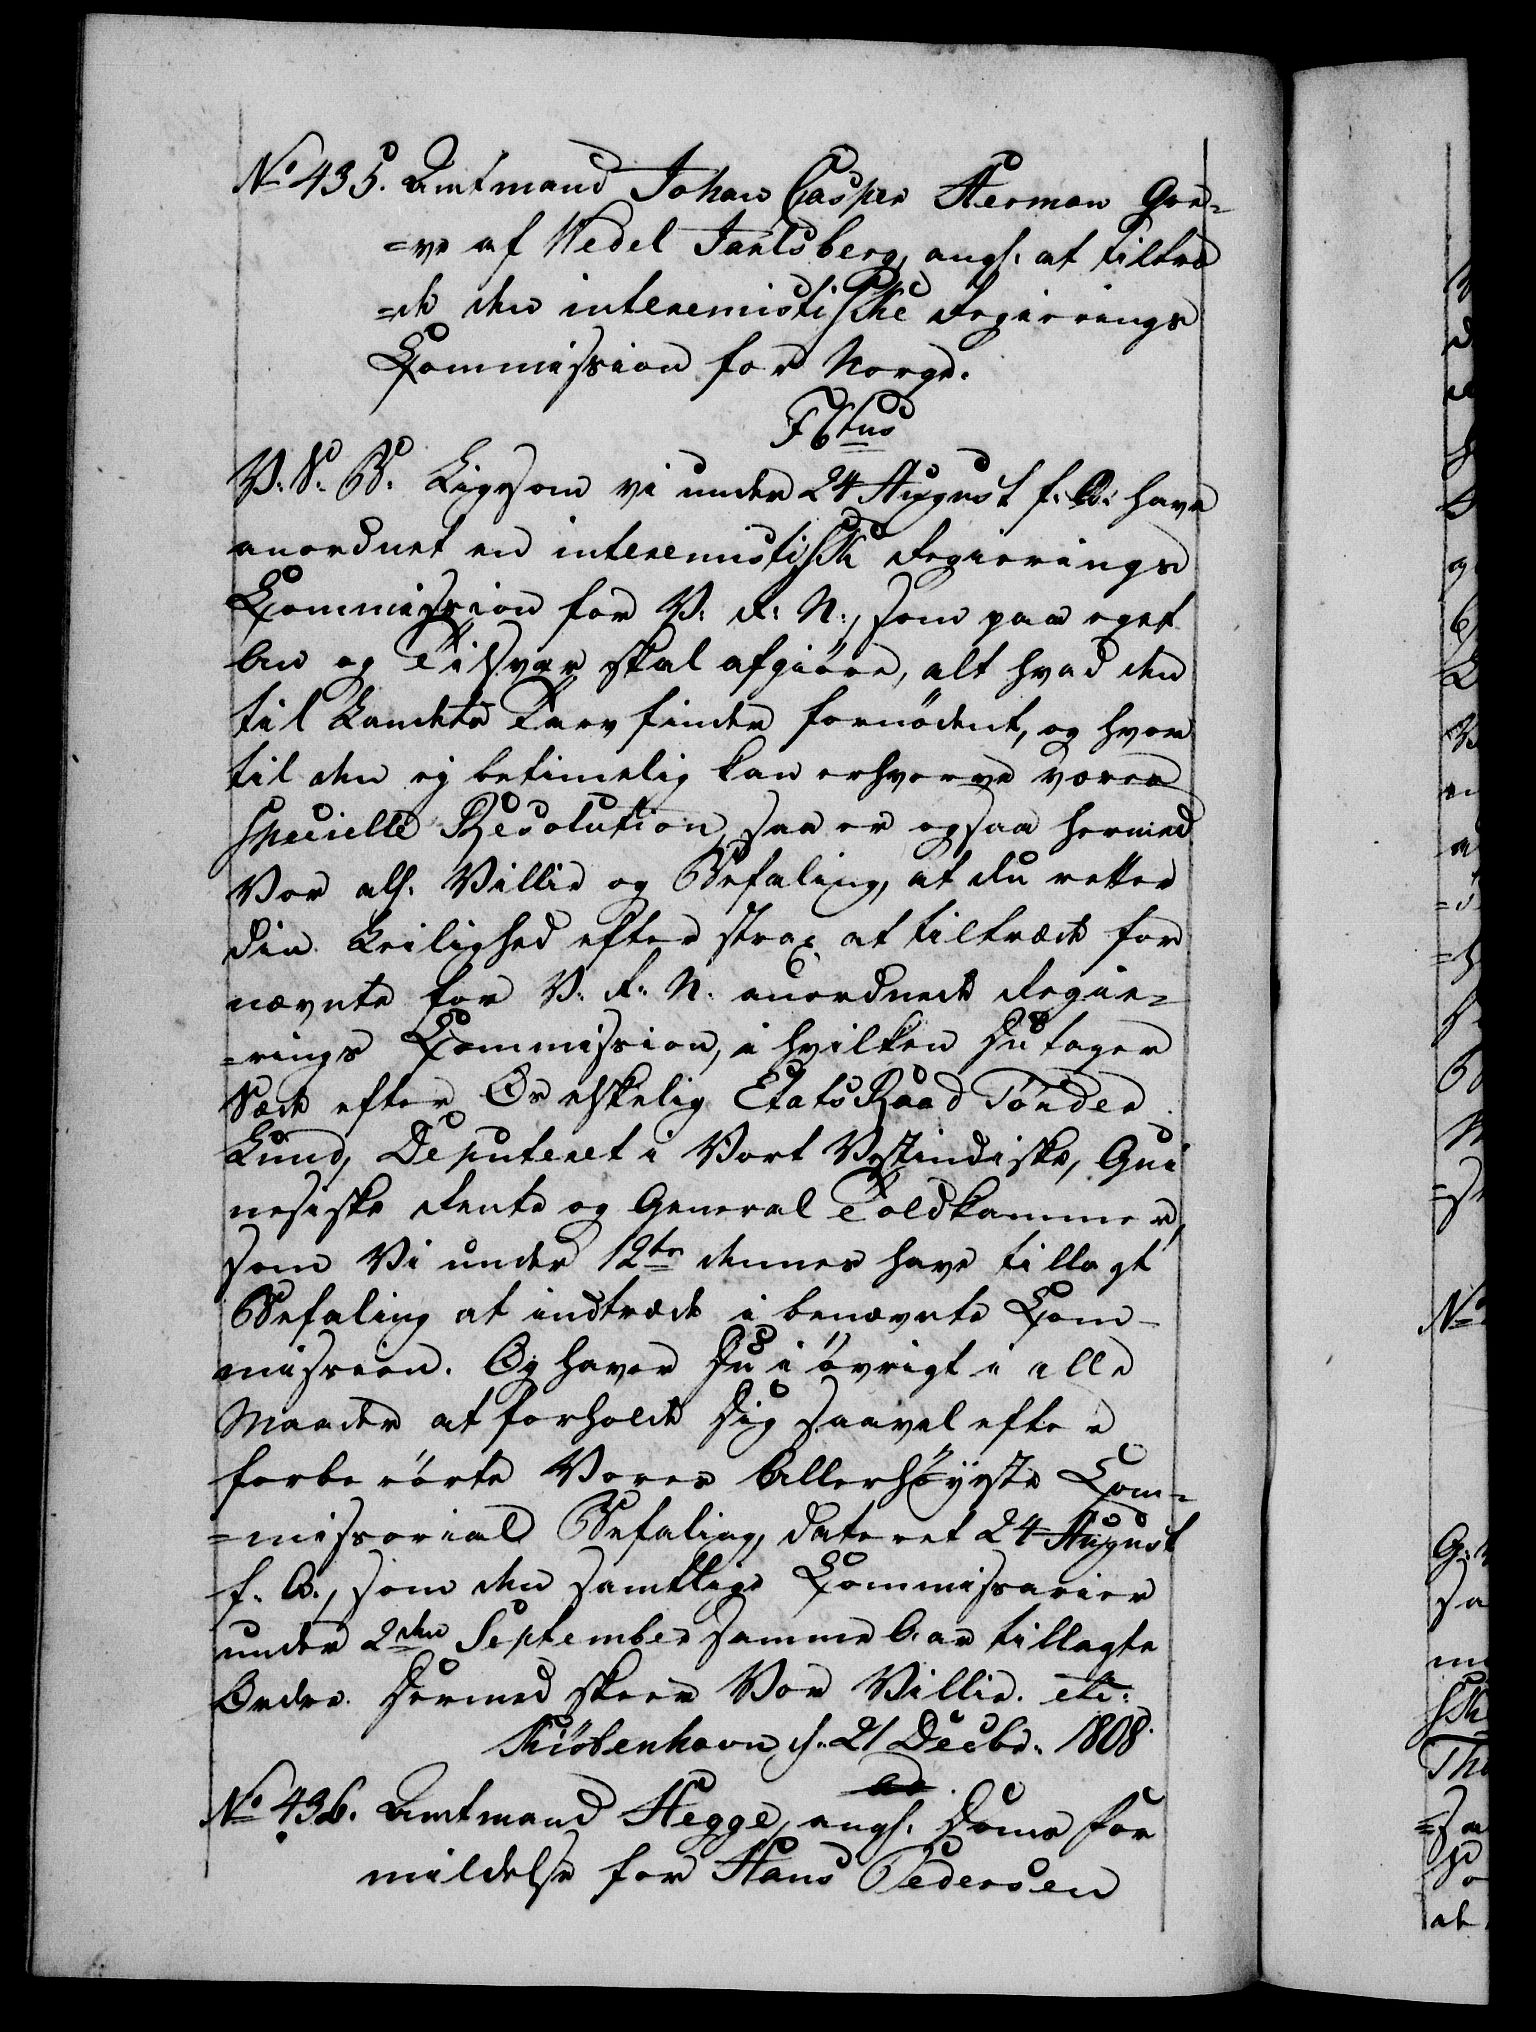 No 435. Amtmand Johan Casper Herman Gre-
=ve af Wedel Jarlsberg, angl. at tiltræ
=de den interemistiske Regierings
Commission for Norge.
F 6tus
V. S. G. Ligesom vi under 24 August f. A. have
anordnet en interemistisk Regierings
Commission for V. R. N., som paa eget
An og Tilsvar skal afgiöre, alt hvad den
til Landets Tarv finder fornödent, og hvor
til den ej betimelig kan erhverve vores
specielle Resolution, saa er ogsaa hermed
Vor all. Villie og Befaling, at du retter
din Leilighed efter strax at tiltræde for
nævnte for V. R. N. anordnede Regie-
=rings Commission, i hvilken Du tager
Sæde efter Os elskelig EtatsRaad Tönder
Lund, Deputeret i Vort Vestindiske, Gui
nesiske Rente og General Toldkammer,
som Vi under 12te dennes have tillagt
Befaling at indtræde i benævnte Com-
mission. Og haver Du i övrigt i alle
Maader at forholde Dig saavel efter
forberörte Vores Allerhöyeste Com-
=missorial Befaling, dateret 24 August
f. A., som den samtlige Commissarier
under 2den September samme Aar tillagte
Ordre. Dermed skeer Vor Villie. etc.
Kiöbenhavn d. 21 Decbr. 1808.
No 436. Amtmand Hegge, angl. Doms for
mildelse for Hans Pedersen